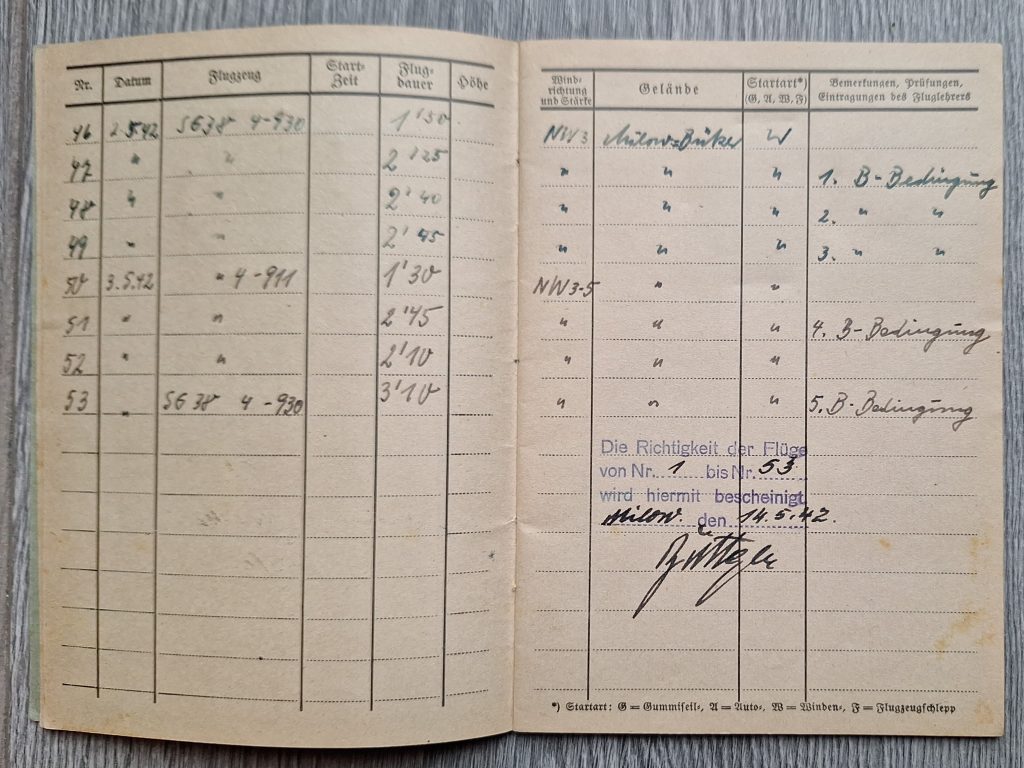 Nr. Datum Flugzeug Start-Zeit Flug-dauer Höhe
46 2.5.42 SG38 4-930 1'30
47 " " 2'25
48 " " 2'40
49 " " 2'45
50 3.5.42 " 4-911 1'30
51 " " 2'45
52 " " 2'10
53 " SG 38 4-930 3'10
Wind-richtung und Stärke Gelände Startart*) (G, A, W, F) Bemerkungen, Prüfungen, Eintragungen des Fluglehrers
NW3 Milow=Büker W
" " " 1. B-Bedingung
" " " 2. " "
" " " 3. " "
NW3-5 " "
" " " 4. B-Bedingung
" " "
" " " 5. B-Bedingung
Die Richtigkeit der Flüge
von Nr. 1 bis Nr. 53
wird hiermit bescheinigt
Milow. den 14.5.42.
*) Startart: G = Gummiseil-, A = Auto-, W = Winden-, F = Flugzeugschlepp